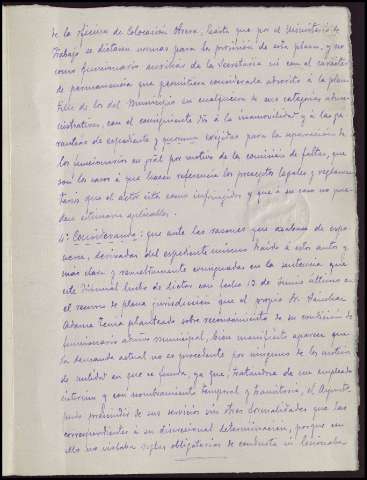 de la oficina de Colocación Obrera, hasta que por el Ministerio de
Trabajo se dictasen normas para la provisión de esta plaza, y no
como funcionario auxiliar de la Secretaría ni con el carácter
de permanencia que permitiera considerarle adscrito a la plan-
tilla de los del Municipio en cualquiera de sus categorías admi-
nistrativas, con el consiguiente dro a la inamovilidad y a las ga-
rantías de expediente y quorum exigidas para la separación de
los funcionarios en gral por motivo de la comisión de faltas, que
son los casos a que hacen referencia los preceptos legales y reglamen-
tarios que el actor cita como infringidos y que a su caso no pue-
den estimarse aplicables.
4º Considerando: que ante las razones que acaban de expo-
nerse, derivadas del expediente mismo traido a estos autos y
más clara y concretamente consignadas en la sentencia que
este Tribunal hubo de dictar con fecha 10 de Junio último en
el recurso de plena jurisdicción que el propio Sr. Sánchez
Adame tenía planteado sobre reconocimiento de su condición de
funcionario activo municipal, bien manifiesto aparece que
la demanda actual no es procedente por ninguno de los motivos
de nulidad en que se funda, ya que, tratándose de un empleado
interino y con nombramiento temporal y transitorio, el Ayunta-
pudo prescindir de sus servicios sin otras formalidades que las
correspondientes a su discrecional determinación, porque con
ello no violaba reglas obligatorias de conducta ni lesionaba